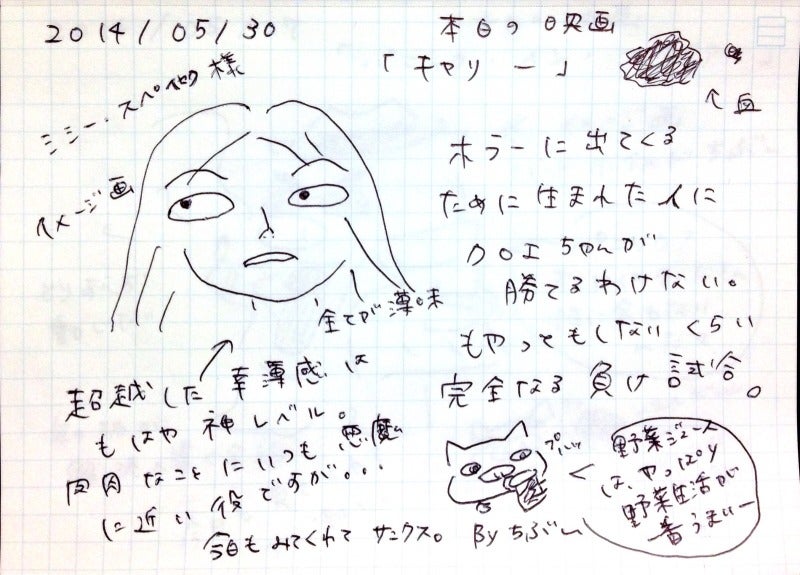 2014/05/30
本日の映画
「キャリー」
↑血
ミミー・スペイセク様
イメージ画
ホラーに出てくる
ために生まれた人に
クロエちゃんが
勝てるわけない。
もやってもしないくらい
完全なる負け試合。
全てが薄味
超越した幸薄感は
もはや神レベル。
皮肉なことにいつも悪魔
に近い役ですが...
今日もみてくれてサンクス。Byちぶー
プハッ
野菜ジュース
は、やっぱり
野菜生活が
一番うまいー